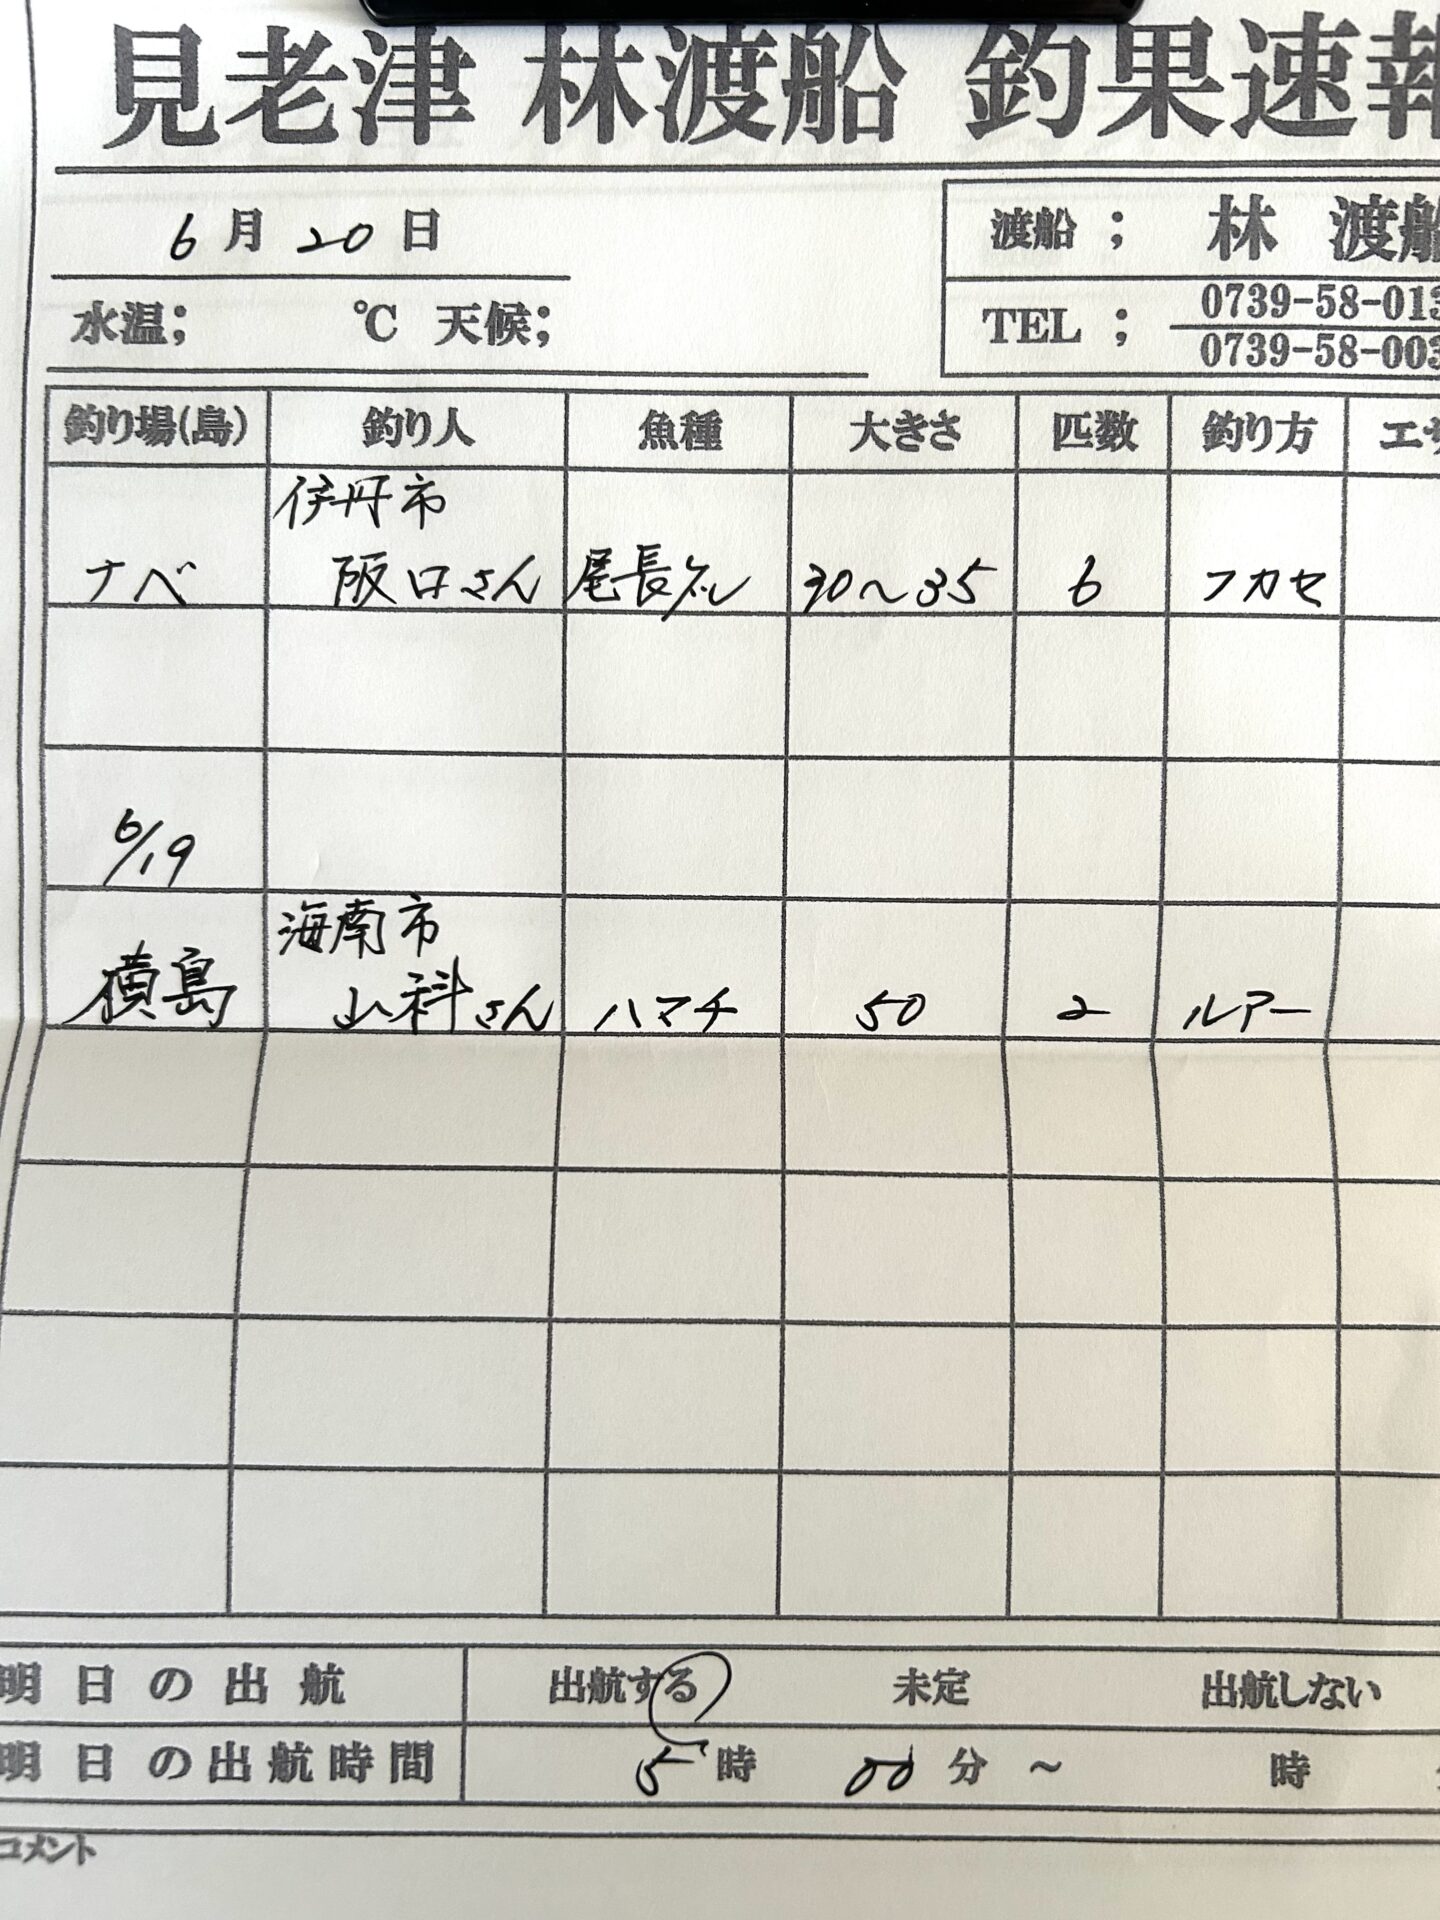 見老津 林渡船 釣果速報
6月20日
渡船 ； 林 渡船
水温; ℃ 天候;
TEL ； 0739-58-013
0739-58-003
釣り場(島) 釣り人 魚種 大きさ 匹数 釣り方 エサ
伊丹市
ナベ 阪口さん 尾長グレ 30～35 6 フカセ
6/19
海南市
横島 山科さん ハマチ 50 2 ルアー
明日の出航 出航する 未定 出航しない
明日の出航時間 5時 00分 ～ 時
コメント